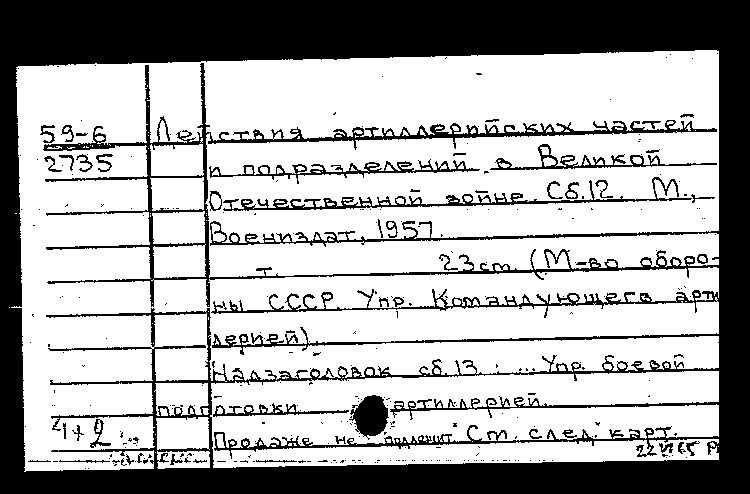 59-6 Действия артиллерийских частей
2735 и подразделений в Великой
Отечественной войне. Сб.12. М.,
Воениздат, 1957.
т. 23 см. (М-во оборо-
ны СССР. Упр. Командующего арти
лерией).
Надзаголовок сб. 13 : ... Упр. боевой
подготовки артиллерией.
4+2
Продаже не подлежит "См. след. карт.